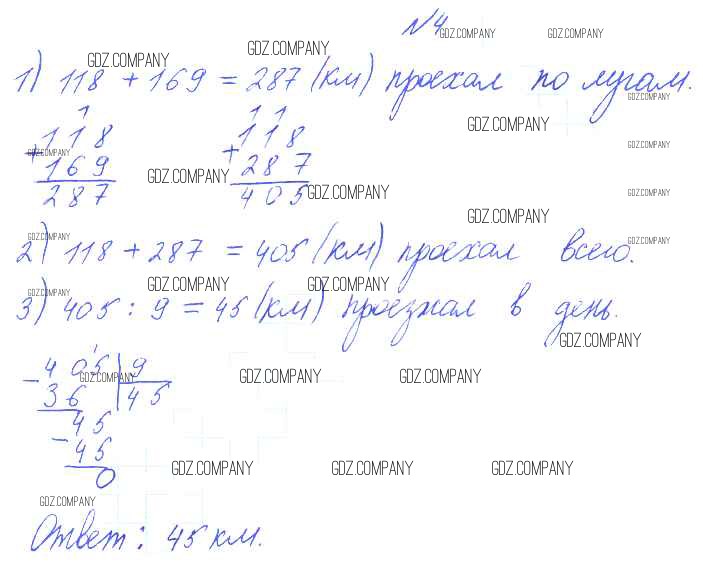 №4
GDZ.COMPANY GDZ.COMPANY
GDZ.COMPANY GDZ.COMPANY
1) 118 + 169 = 287 (км) проехал по лугам.
GDZ.COMPANY
1 1 1
118 118 GDZ.COMPANY
+ + GDZ.COMPANY
GDZ.COMPANY
169 GDZ.COMPANY 287 GDZ.COMPANY GDZ.COMPANY
287 405
GDZ.COMPANY
GDZ.COMPANY GDZ.COMPANY
2) 118 + 287 = 405 (км) проехал всего.
GDZ.COMPANY GDZ.COMPANY GDZ.COMPANY
3) 405 : 9 = 45 (км) проезжал в день.
GDZ.COMPANY
- 405 | 9
GDZ.COMPANY GDZ.COMPANY GDZ.COMPANY
36 | 45
45
- 45
GDZ.COMPANY GDZ.COMPANY GDZ.COMPANY
0
GDZ.COMPANY
Ответ: 45 км.